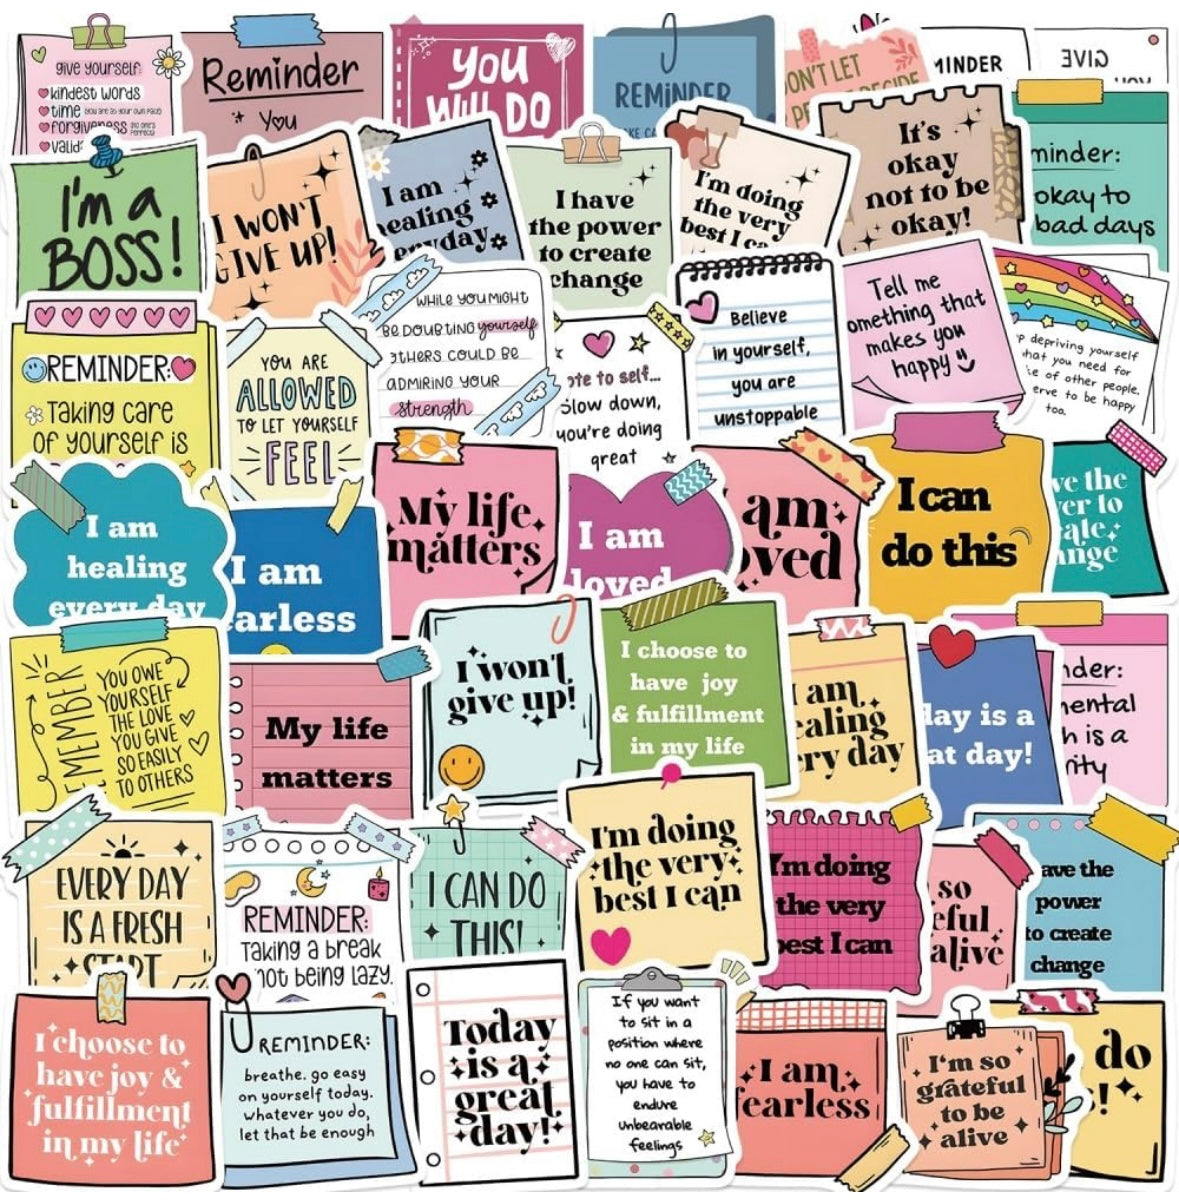 give yourself:
kindest words
time (you are at your own pace)
forgiveness (no one's perfect)
Reminder
You
YOU
WILL DO
REMINDER
DON'T LET
DECIDE
MINDER
GIVE
YOU
I'm a
BOSS!
I WON'T
GIVE UP!
I am
healing
everyday
I have
the power
to create
change
I'm doing
the very
best I can
It's
okay
not to be
okay!
minder:
okay to
bad days
REMINDER:
Taking care
of yourself is
YOU ARE
ALLOWED
TO LET YOURSELF
FEEL
WHILE YOU MIGHT
BE DOUBTING yourself
OTHERS COULD BE
ADMIRING YOUR
strength
note to self...
Slow down,
you're doing
great
Believe
in yourself,
you are
unstoppable
Tell me
something that
makes you
happy
depriving yourself
what you need for
of other people.
deserve to be happy
too.
I am
healing
every day
I am
fearless
My life
matters
I am
loved
am
loved
I can
do this
have the
power to
create
change
REMEMBER
YOU OWE
YOURSELF
THE LOVE
YOU GIVE
SO EASILY
TO OTHERS
My life
matters
I won't
give up!
I choose to
have joy
& fulfillment
in my life
I am
healing
every day
day is a
at day!
nder:
mental
h is a
rity
EVERY DAY
IS A FRESH
START
REMINDER:
Taking a break
not being lazy.
I CAN DO
THIS!
I'm doing
the very
best I can
I'm doing
the very
best I can
so
eful
alive
have the
power
to create
change
I choose to
have joy &
fulfillment
in my life
REMINDER:
breathe. go easy
on yourself today.
whatever you do,
let that be enough
Today
is a
great
day!
If you want
to sit in a
position where
no one can sit,
you have to
endure
unbearable
feelings
I am
fearless
I'm so
grateful
to be
alive
do
!